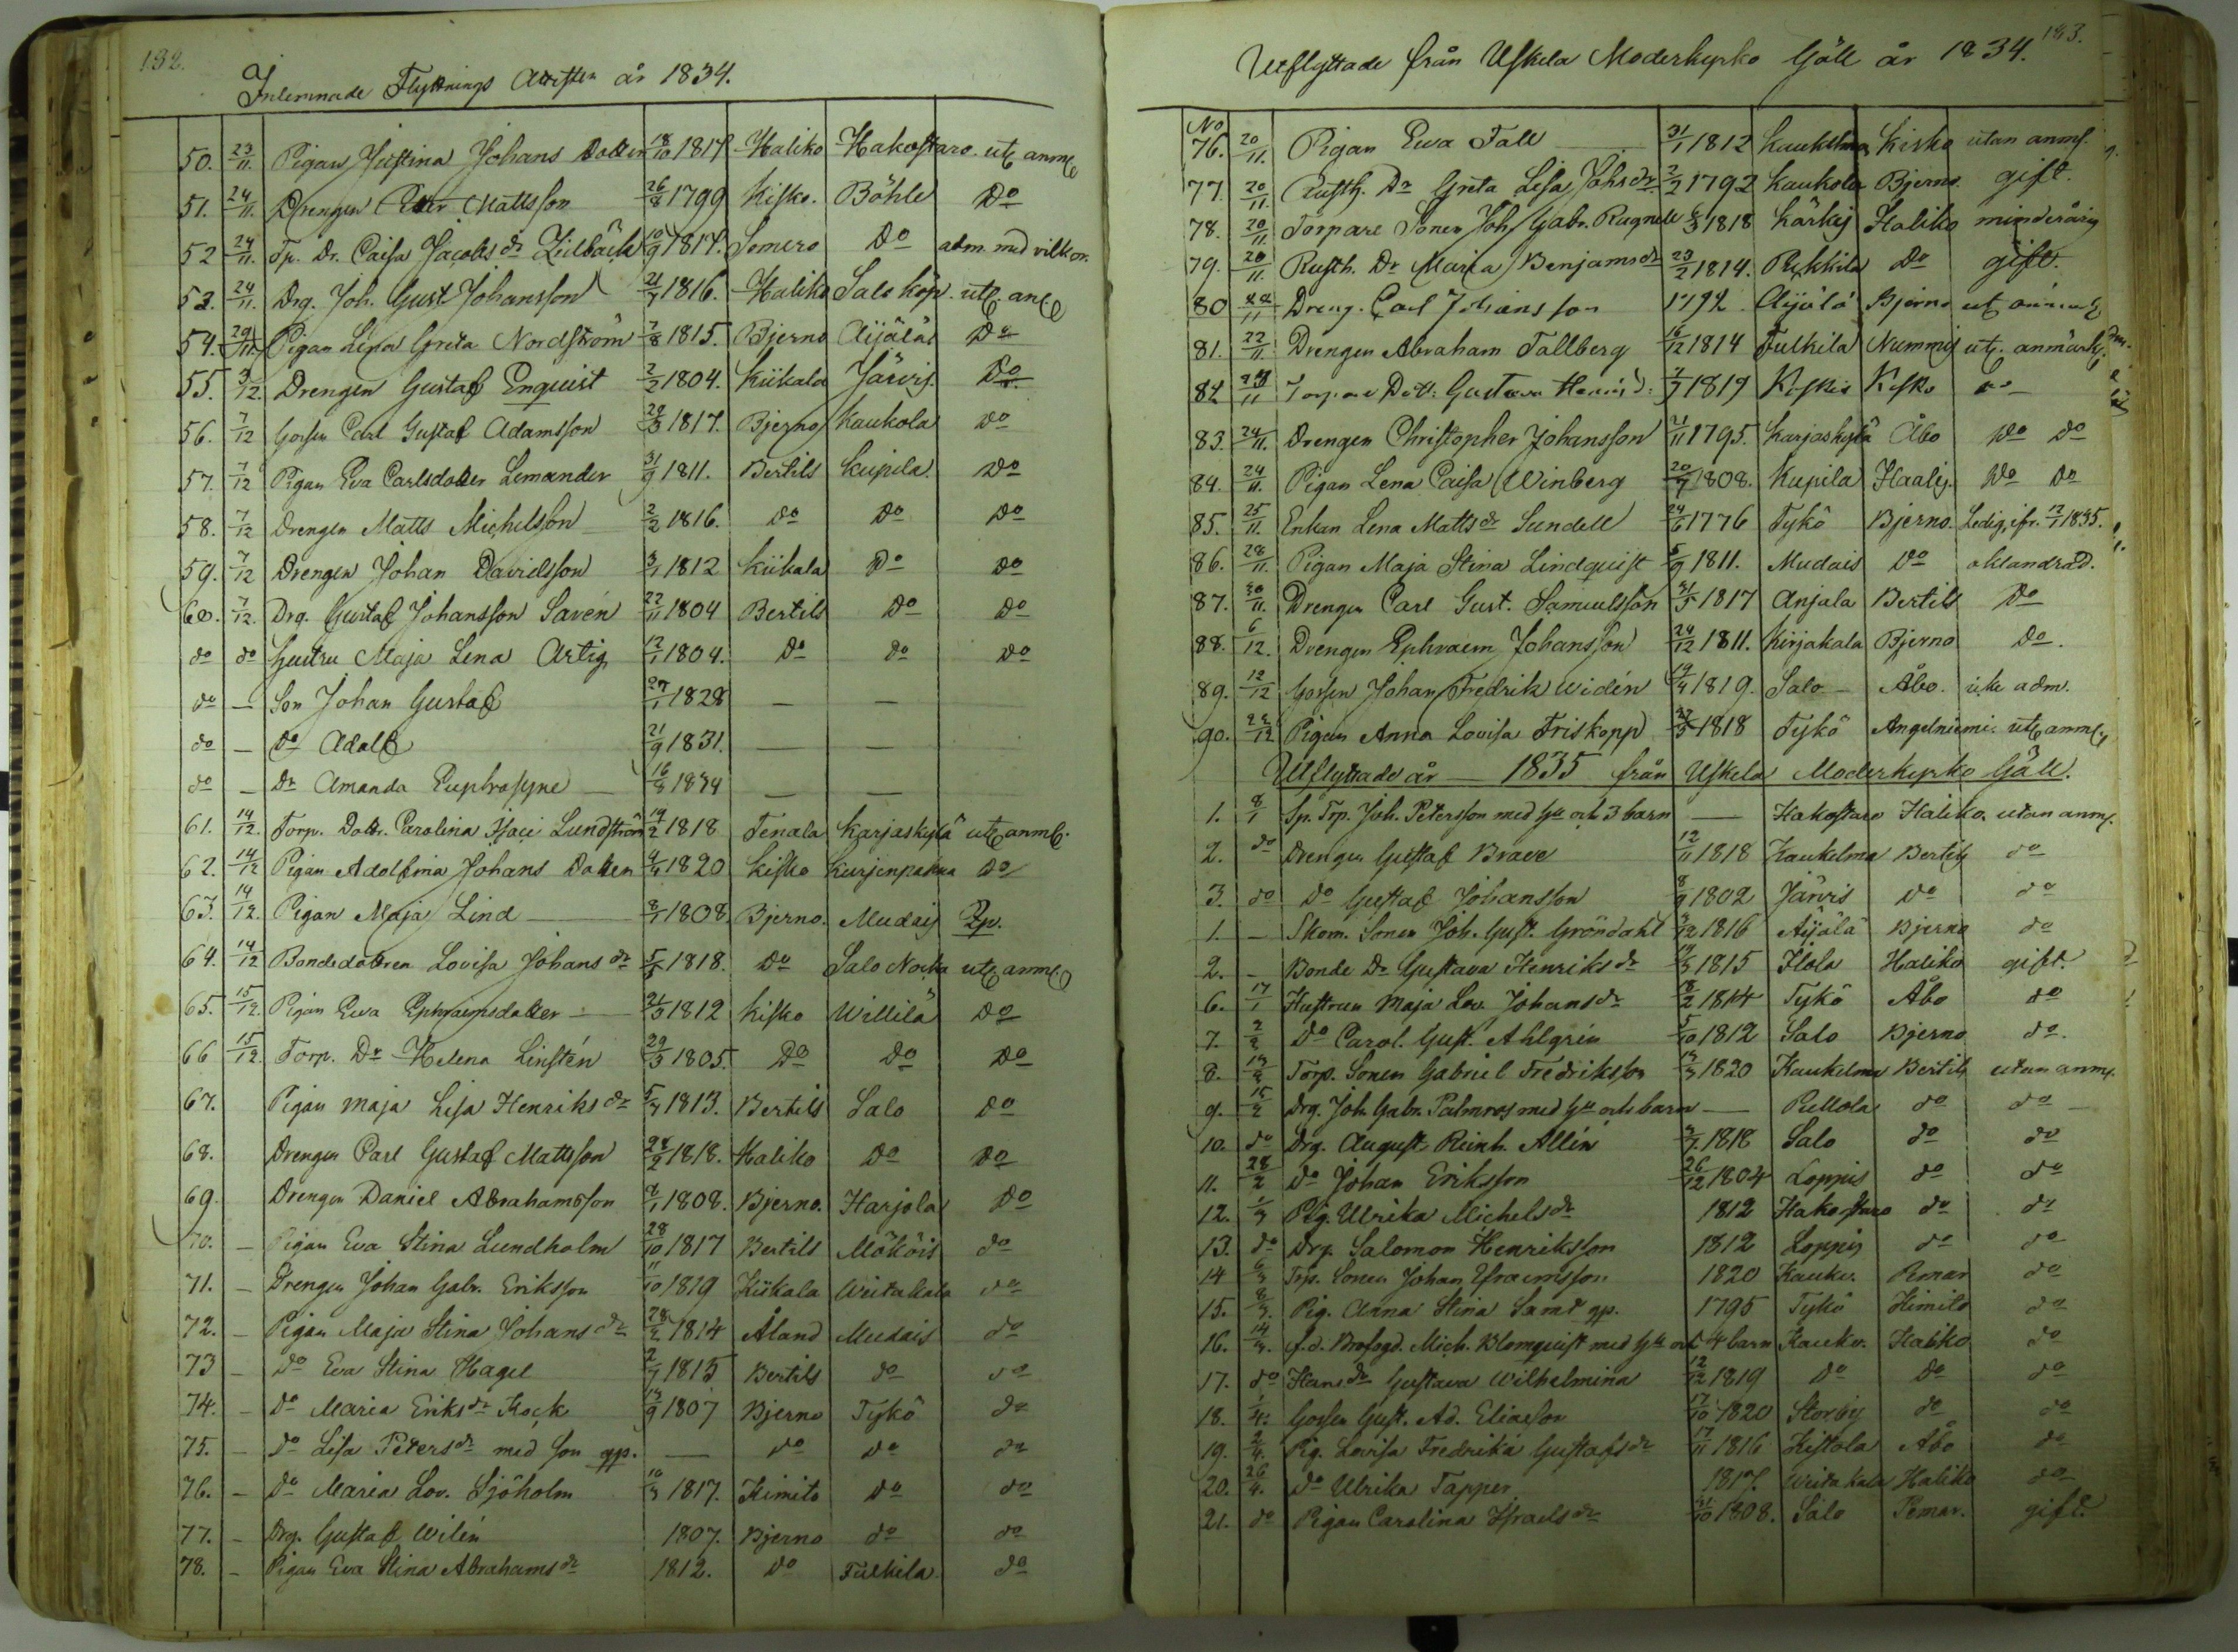 182.
Inlemnade Flyttnings Attester år 1834.
50. 23/11. Pigan Justina Johans Dotter 18/10 1817 Haliko Hakostaro. utf anmf
51. 24/11. Drengen Petter Mattsson 26/8 1799 Kisko. Böhle Do
52 24/11. Tp. Dr. Caisa Jacobs dr Lilbäck 10/9 1817. Somero Do adm. med vilkor.
53. 24/11. Drg. Joh. Gust Johansson 21/7 1816. Haliko Salo köp. utf. anf
54. 29/11. Pigan Lena Greta Nordström 7/8 1815. Bjerno Aijälä Do
55. 3/12. Drengen Gustaf Enquist 2/2 1804. Kiikala Järvis. Do
56. 7/12 Gossen Carl Gustaf Adamsson 29/3 1817. Bjerno Kaukola Do
57. 7/12 Pigan Eva Carlsdotter Lemander 31/9 1811. Bertils Kupila. Do
58. 7/12 Drengen Matts Michelsson 2/2 1816. Do Do Do
59. 7/12 Drengen Johan Davidsson 3/1 1812 Kiikala Do Do
60. 7/12. Drg. Gustaf Johansson Savén 22/11 1804 Bertils Do Do
do do Hustru Maja Lena Artig 12/1 1804. Do do Do
do — Son Johan Gustaf 27/1 1828 — —
do — do Adolf 21/9 1831. — —
do — Dr Amanda Euphrosyne 16/8 1834 — —
61. 14/12. Torp. Dottr. Carolina Isaci Lundström 19/2 1818 Tenala Karjaskylä utf anmf.
62. 14/12 Pigan Adolfina Johans Dotter 4/4 1820 Kisko Kurjenpahna Do
63. 14/12. Pigan Maja Lind 8/1 1808 Bjerno. Mudais
64. 14/12 Bondedottren Lovisa Johans dr 5/5 1818. Do Salo Norka utf anmf
65. 15/12. Pigan Eva Ephraimsdotter 21/3 1812 Kisko Willilä Do
66 15/12. Torp. Dr Helena Linstén 29/3 1805. Do Do Do
67. Pigan Maja Lisa Henriks dr 5/3 1813. Bertils Salo Do
68. Drengen Carl Gustaf Mattsson 24/2 1818. Haliko Do Do
69. Drengen Daniel Abrahamsson 2/1 1808. Bjerno. Harjola Do
70. — Pigan Eva Stina Lundholm 28/10 1817 Bertils Mököis do
71. — Drengen Johan Gabr. Eriksson 11/10 1819 Kiikala Weitakala do
72. — Pigan Maja Stina Johans dr 28/2 1814 Åland Mudais do
73 — Do Eva Stina Hagel 2/7 1815 Bertils do do
74. — Do Maria Eriks dr Kock 13/9 1807 Bjerno Tykö do
75. — Do Lisa Peters dr med son gp. — do do do
76. — Do Maria Lov. Sjöholm 10/3 1817. Kimito Do do
77. — Drg. Gustaf Wilén 1807. Bjerno do do
78. — Pigan Eva Stina Abrahams dr 1812. Do Tulkila do
183.
Utflyttade från Uskela Moderkyrko Gäll år 1834.
No
76. 20/11. Pigan Eva Fall 31/1 1812 Kaukelma Kisko utan anmf.
77. 20/11 Rusth. Dr Greta Lisa Johs dr 2/2 1792 Kaukola Bjerno. gift.
78. 20/11 Torpare Sonen Joh Gabr. Ragnell 6/3 1818 Kärkis Haliko minderårig
79. 20/11. Rusth. Dr Maria Benjams dr 23/2 1814. Pukkila Do gift.
80 22/11 Dreng. Carl Johansson 1792. Aijälä Bjerno utf anmf
81. 22/11. Drengen Abraham Tallberg 16/12 1814 Tulkila Nummis utf. anmärk.
82 11 Torpare Dott: Gustava Henrics d: 7/7 1819 Kiskis Kisko do
83. 24/11. Drengen Christopher Johansson 21/11 1795. Karjaskylä Åbo Do Do
84. 24/11. Pigan Lena Caisa Winberg 20/7 1808. Kupila Haalis. Do Do
85. 25/11. Enkan Lena Matts dr Sundell 24/6 1776 Tykö Bjerno. Ledig, ifr. 12/1 1835.
86. 28/11. Pigan Maja Stina Lindquist 5/9 1811. Mudais Do oklandrad.
87. 30/11. Drengen Carl Gust. Samuelsson 31/5 1817 Anjala Bertils Do
88. 6/12. Drengen Ephraim Johansson 24/12 1811. Kirjakala Bjerno Do.
89. 12/12 Gossen Johan Fredrik Widén 19/4 1819. Salo — Åbo. icke adm.
90. 22/12 Pigan Anna Lovisa Friskopp 27/3 1818 Tykö Angelniemi utf anmf.
Utflyttade år — 1835 från Uskela Moderkyrko Gäll.
1. 8/1 Sp. Trp. Joh. Petersson med hu och 3 barn — Hakostaro Haliko. utan anmf.
2. do Drengen Gustaf Brave 12/11 1818 Kaukelma Bertils do
3. do Do Gustaf Johansson 8/9 1802 Järvis Do do
1. — Skom. Sonen Joh. Gust. Gröndahl 3/12 1816 Aijälä Bjerno do
2. — Bonde Dr Gustava Henriks dr 13/3 1815 Ilola Haliko gift.
6. 17/1 Hustrun Maja Lov. Johans dr 8/2 1814 Tykö Åbo do
7. 2/2 Do Carol. Gust. Ahlgrén 5/10 1812 Salo Bjerno do.
8. 13/2 Torp. Sonen Gabriel Fredriksson 13/3 1820 Kaukelma Bertils utan anmf.
9. 15/2 Drg. Joh. Gabr. Palmros med hu och barn — Pullola do do
10. do Drg. August Reinh. Allén 3/7. 1818 Salo do do
11. 28/2 Do Johan Eriksson 26/12 1804 Loppis do do
12. 1/3 Pig. Ulrika Michels dr 1812 Hakostaro do do
13. do Drg. Salomon Henriksson 1812 Loppis do do
14 6/3 Trp. Sonen Johan Efraimsson 1820 Kauko. Pemar do
15. 8/3. Pig. Anna Stina Samd gp. 1795 Tykö Kimito do
16. 14/3. f.d. Brofogd. Mich. Blomquist med hu och 4 barn Kauko. Haliko do
17. do Hans dr Gustava Wilhelmina 12/12 1819 Do Do do
18. 1/4. Gossen Gust. Ad. Eliasson 17/10 1820 Storby do do
19. 2/4. Pig. Lovisa Fredrika Gustafs dr 17/11 1816 Kistola Åbo do
20. 26/4. Do Ulrika Tapper. 1817. Weitakala Haliko do
21. do Pigan Carolina Israels dr 31/10 1808. Salo Pemar. gift.